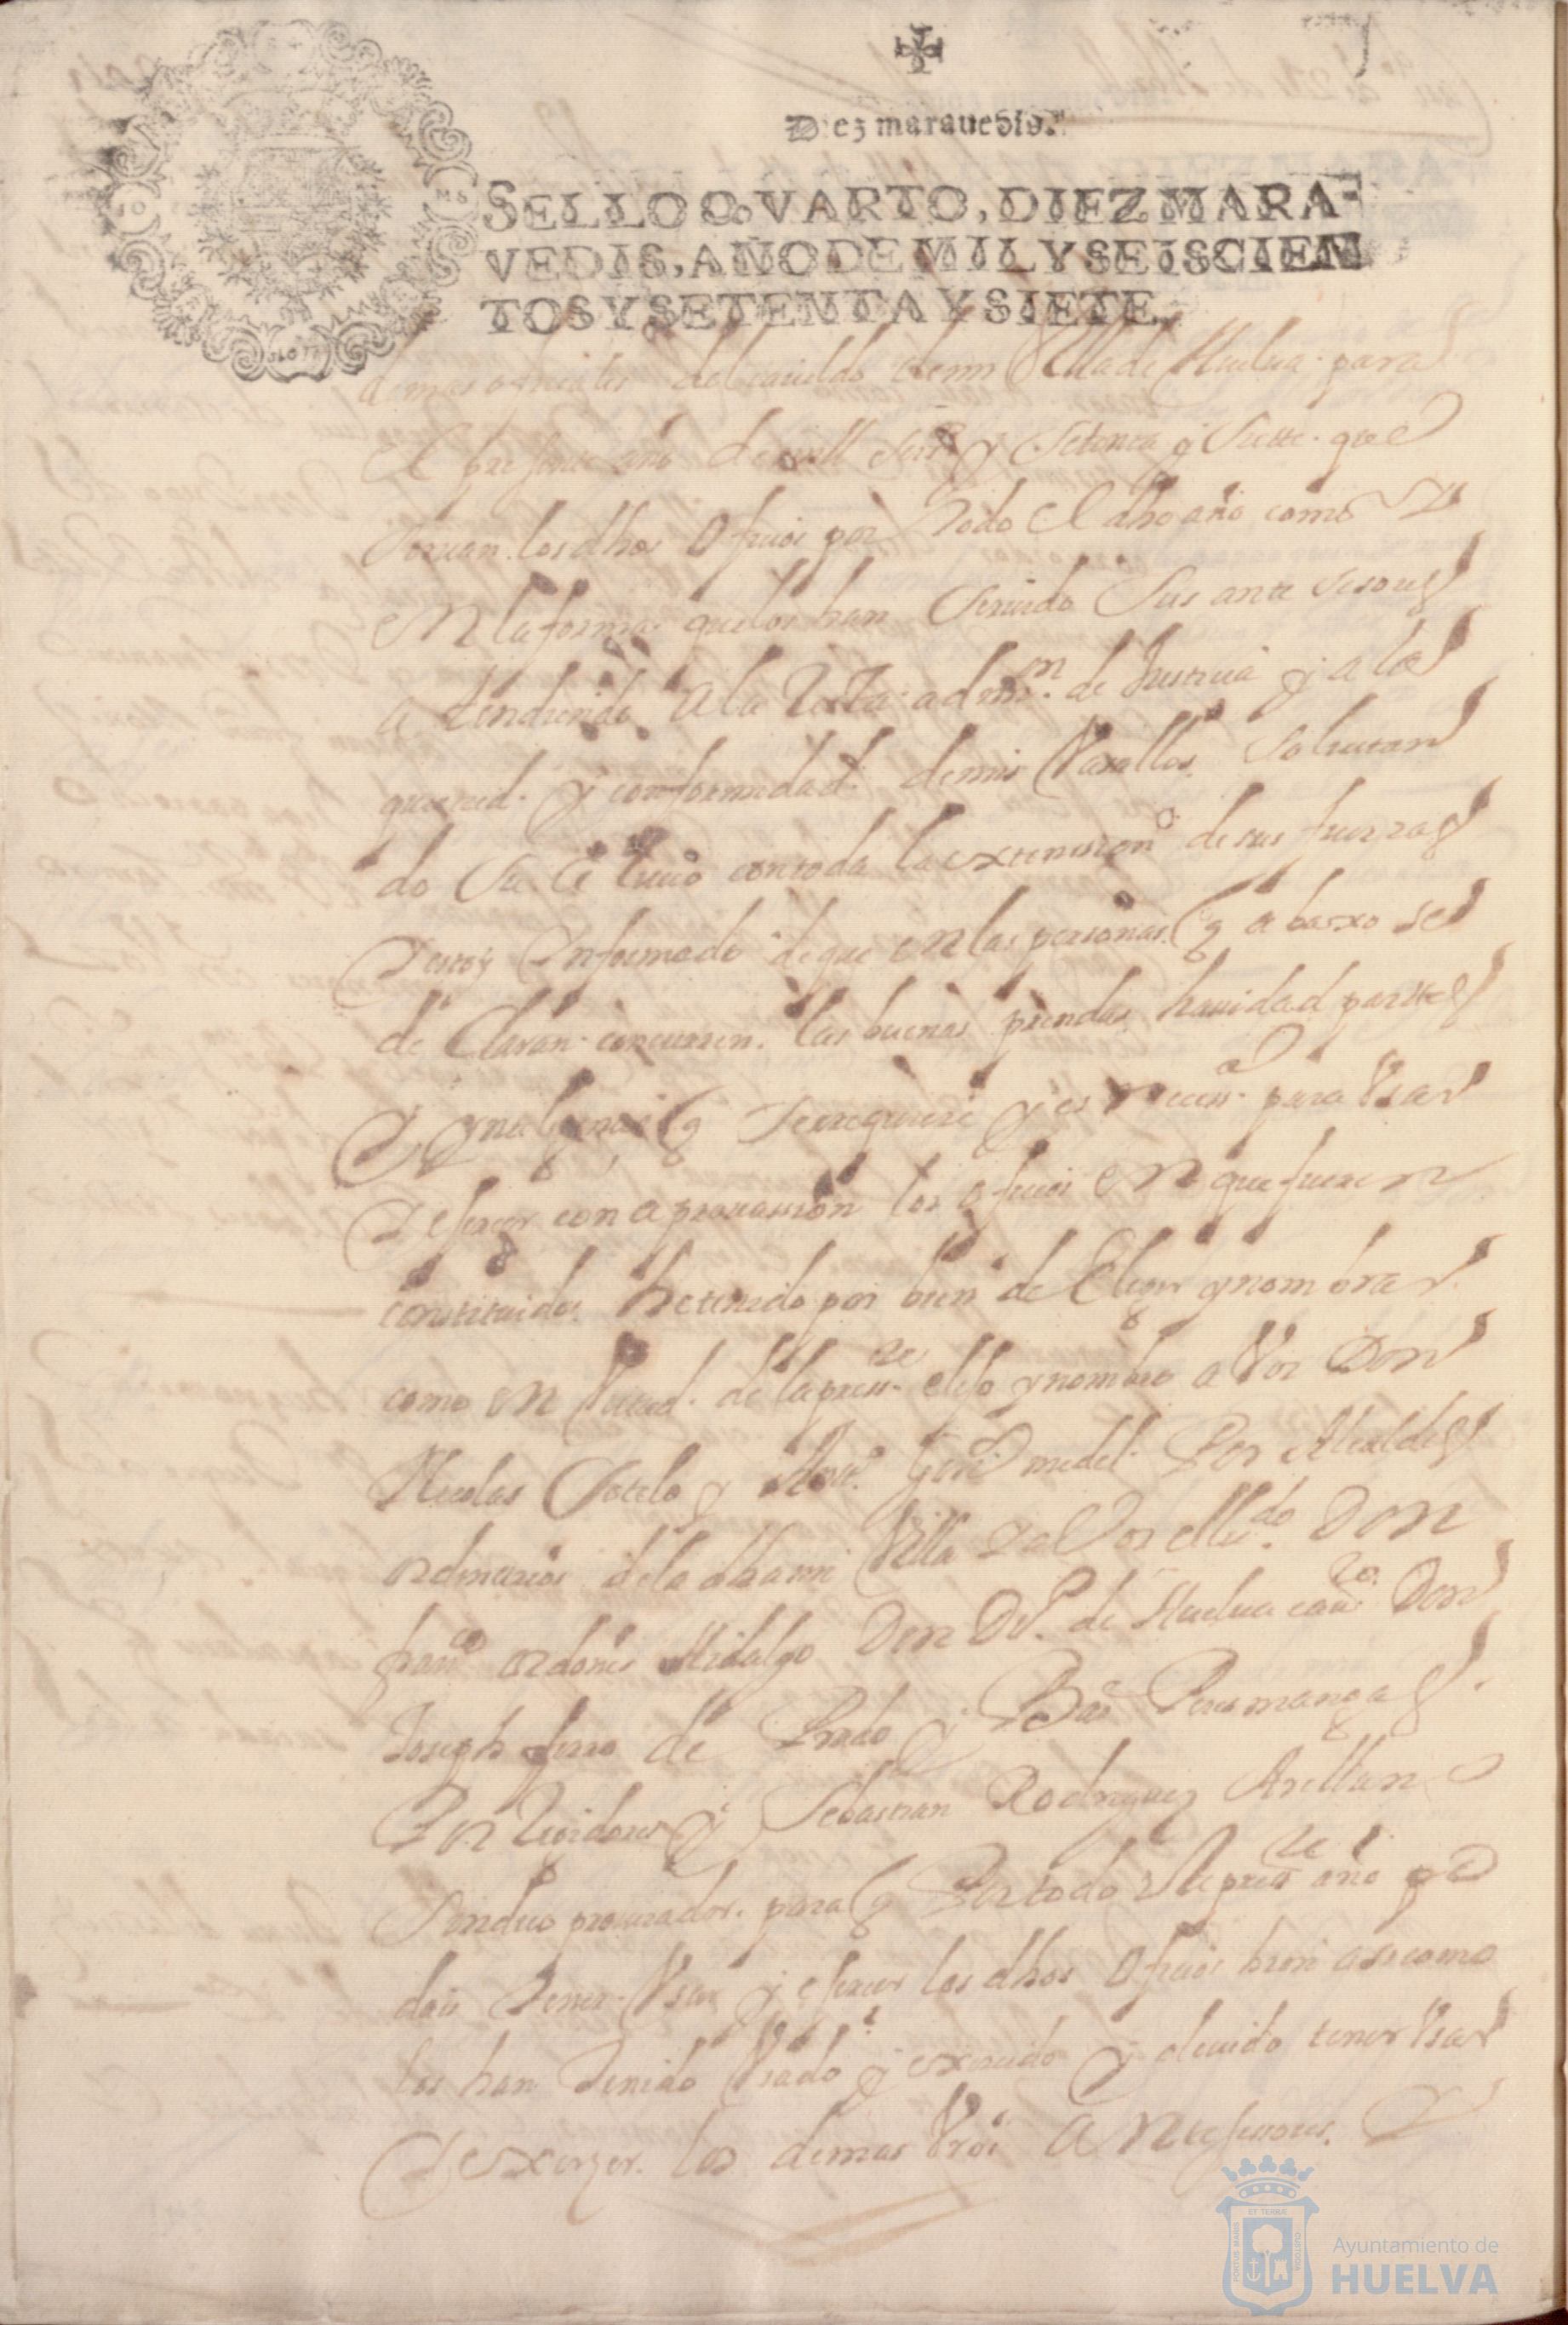 Diez marauedis.
SELLO QVARTO, DIEZ MARA-
VEDIS, AÑO DE MIL Y SEISCIEN
TOS Y SETENTA Y SIETE.
demas ofiçiales del cauildo de mi Villa de Huelua para
El presente año de mill seis.s y Setenta y Siette que
siruan los dhos Ofiçios por Todo El dho año como Y
en la forma que los han Seruido Sus antesesores
atendiendo a la Recta admi.on de Justicia y a la
quietud y conformidad de mis Vasallos Solicitan
do Su aliuio con toda la extension de sus fuerzas
Y estoy Informado de que en las personas q abaxo se
de Claran concurren las buenas prendas hauilidad partes
Y q Se requiere y es necess.o para Vsar
Y eserçer con aprouassion los ofiçios en que fueren
constituidos he tenido por bien de Elegir y nombrar
como en Virtud de la press.te elijo y nombro a Vos Don
Nicolas Sotelo y Gon.s medel Por Alcaldes
ordinarios de la dha mi Villa Y a Vos el liz.do Don
fran.co ordoñes Hidalgo Don D.o de Huelua cau.o Don
Joseph ferro de Prado y B.me Peres manga
Por Regidores y Sebastian Rodriguez Arellano
Sindico procurador para q Por todo este pres.te año po
dais Tener Vsar y eserçer los dhos Ofiçios bien assi como
los han Tenido Vsado y exerçido y deuido tener Vsar
Y exerzer los demas Vros Antesesores Y
ET TERRAE
PORTUS MARIS
CUSTODIA
Ayuntamiento de
HUELVA